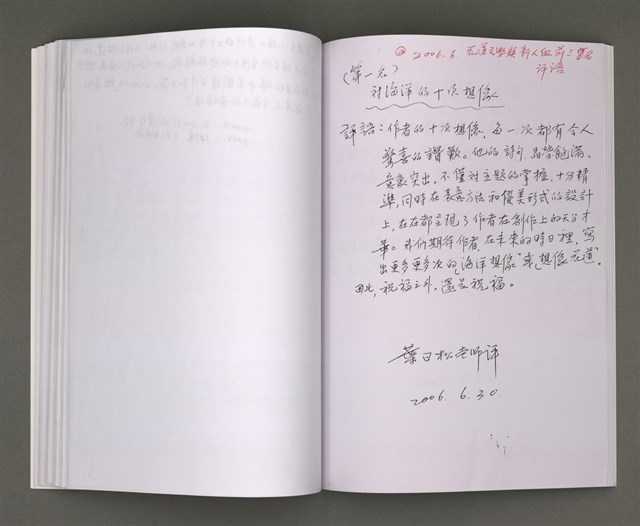 2006.6. 花蓮文學獎新人組前三名
評語
(第一名)
對海洋的十次想像
評語：作者的十次想像，每一次都有令人
驚喜的讚歎。他的詩句，晶瑩飽滿、
意象突出。不僅對主題的掌握，十分精
準，同時在表意方法和優美形式的設計
上，在在都呈現了作者在創作上的天分才
華。我們期待作者，在未來的時日裡，寫
出更多更多次的「海洋想像」或「想像花蓮」。
因此，祝福之外，還是祝福。
葉日松老師評
2006.6.30